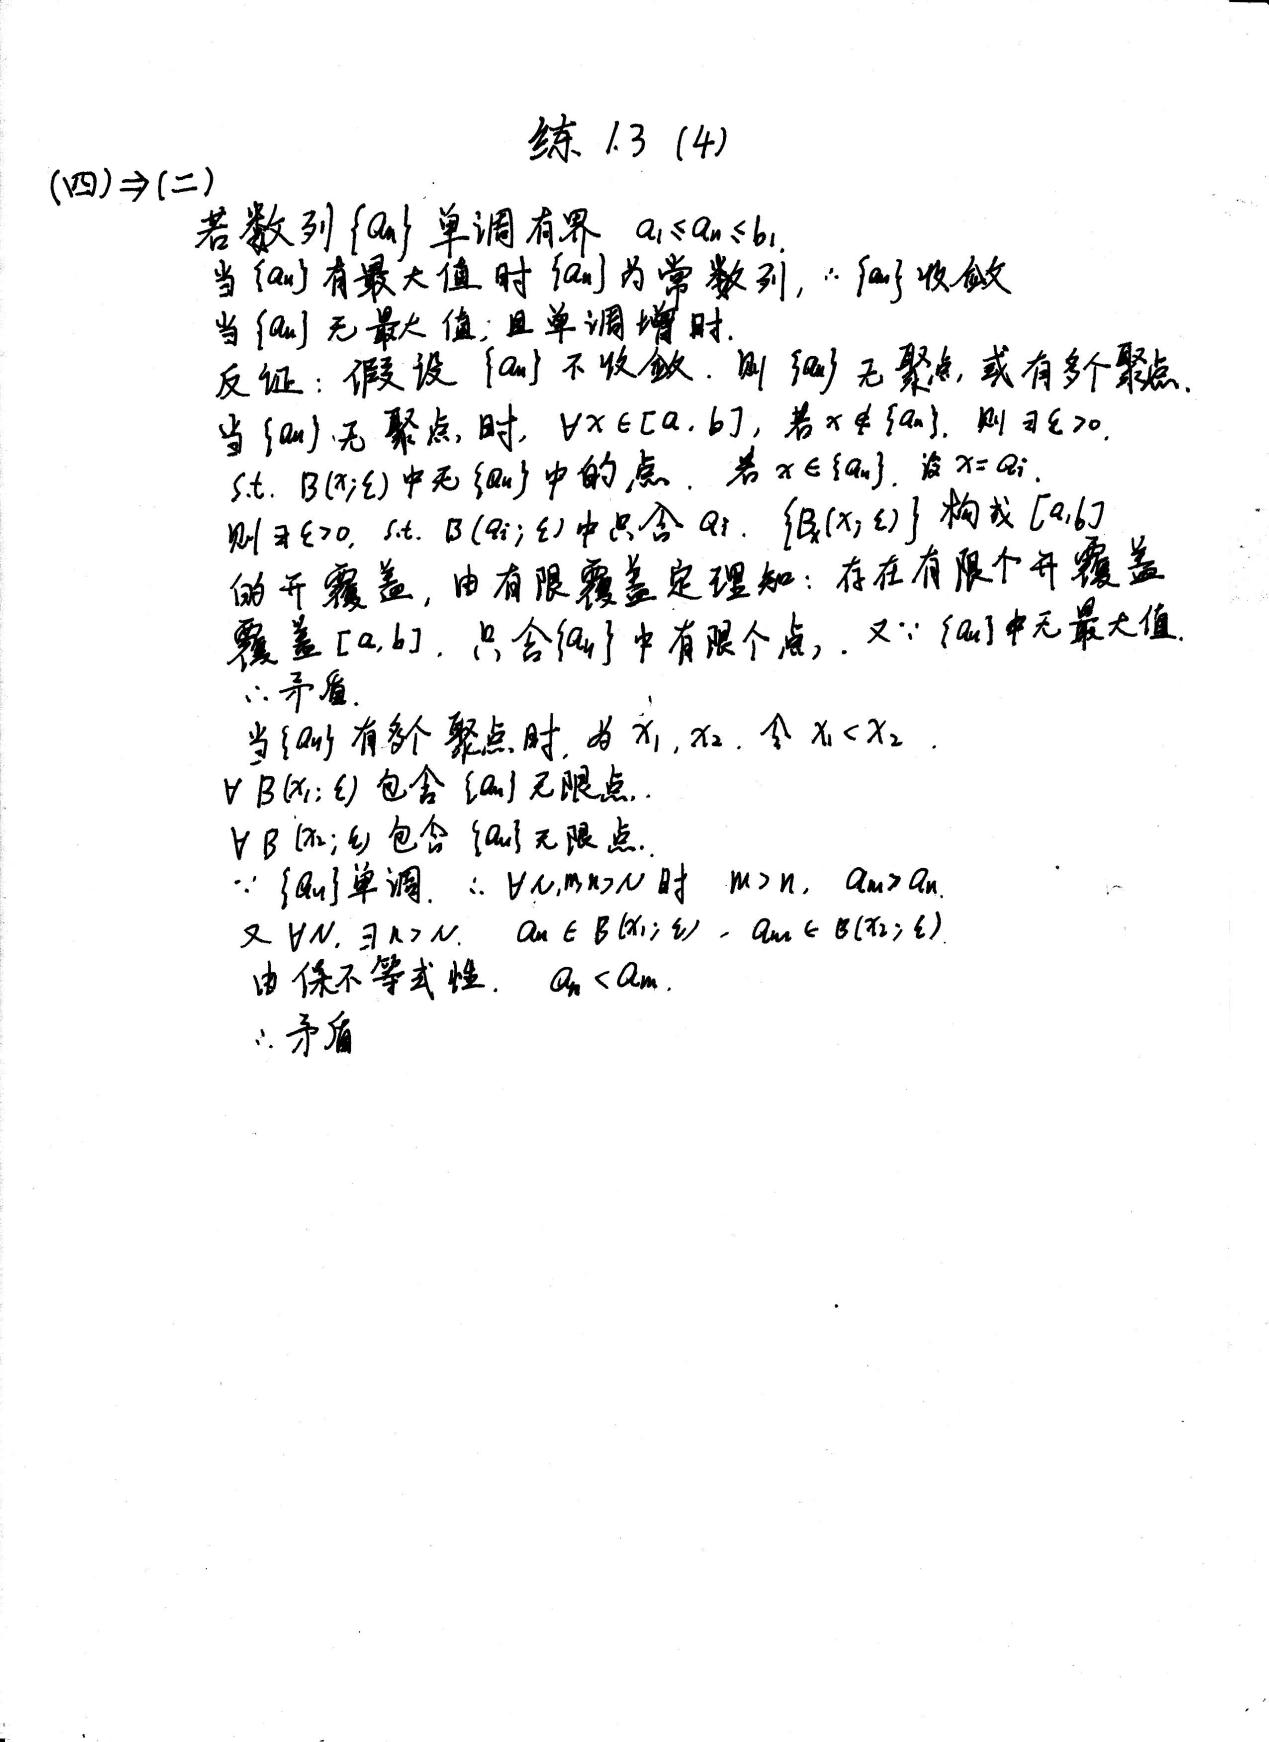 练 1.3 (4)
(四)⇒(二)
若数列{an}单调有界 a1≤an≤b1.
当{an}有最大值时{an}为常数列, ∴{an}收敛
当{an}无最大值;且单调增时.
反证: 假设{an}不收敛. 则{an}无聚点,或有多个聚点.
当{an}无聚点时, ∀x∈[a,b], 若x∉{an}. 则∃ε>0.
s.t. B(x;ε)中无{an}中的点. 若x∈{an}. 设x=ai.
则∃ε>0, s.t. B(ai;ε)中只含ai. {Bx(x;ε)}构成[a,b]
的开覆盖, 由有限覆盖定理知: 存在有限个开覆盖
覆盖[a,b]. 只含{an}中有限个点,. 又∵{an}中无最大值.
∴矛盾.
当{an}有多个聚点时. 为x1,x2. 令x1<x2.
∀B(x1;ε)包含{an}无限点.
∀B(x2;ε)包含{an}无限点.
∵{an}单调. ∴∀N,m,n>N时 m>n, am>an.
又∀N, ∃n>N. an∈B(x1;ε), am∈B(x2;ε).
由保不等式性. an<am.
∴矛盾